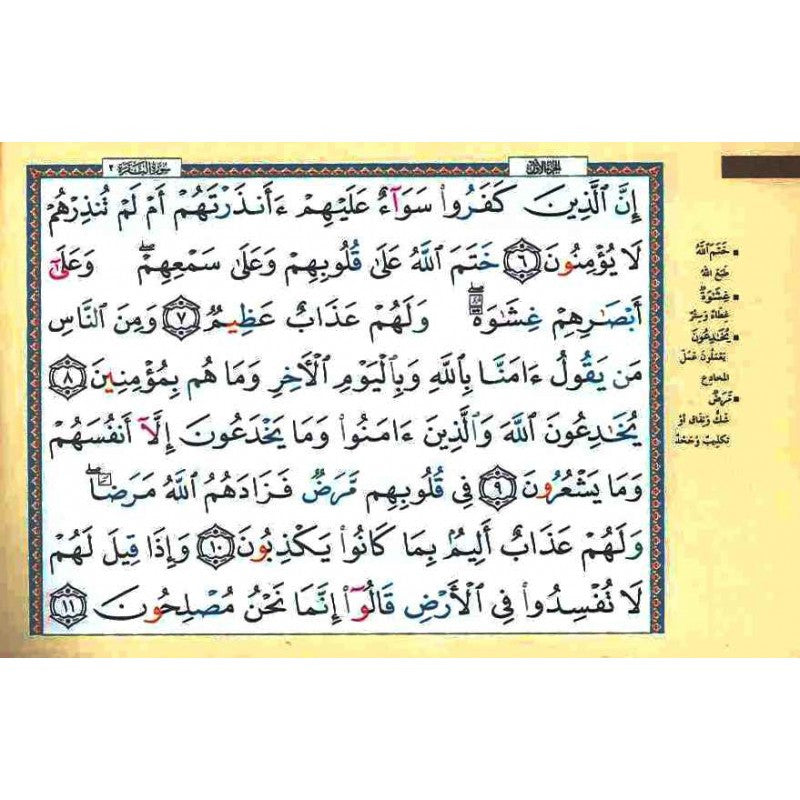 الجزء الأول
سورة البقرة ٢
إِنَّ ٱلَّذِينَ كَفَرُوا۟ سَوَآءٌ عَلَيْهِمْ ءَأَنذَرْتَهُمْ أَمْ لَمْ تُنذِرْهُمْ
لَا يُؤْمِنُونَ ٦ خَتَمَ ٱللَّهُ عَلَىٰ قُلُوبِهِمْ وَعَلَىٰ سَمْعِهِمْ ۖ وَعَلَىٰٓ
أَبْصَٰرِهِمْ غِشَٰوَةٌ ۖ وَلَهُمْ عَذَابٌ عَظِيمٌ ٧ وَمِنَ ٱلنَّاسِ
مَن يَقُولُ ءَامَنَّا بِٱللَّهِ وَبِٱلْيَوْمِ ٱلْأَخِرِ وَمَا هُم بِمُؤْمِنِينَ ٨
يُخَٰدِعُونَ ٱللَّهَ وَٱلَّذِينَ ءَامَنُوا۟ وَمَا يَخْدَعُونَ إِلَّآ أَنفُسَهُمْ
وَمَا يَشْعُرُونَ ٩ فِى قُلُوبِهِم مَّرَضٌ فَزَادَهُمُ ٱللَّهُ مَرَضًا ۖ
وَلَهُمْ عَذَابٌ أَلِيمٌۢ بِمَا كَانُوا۟ يَكْذِبُونَ ١٠ وَإِذَا قِيلَ لَهُمْ
لَا تُفْسِدُوا۟ فِى ٱلْأَرْضِ قَالُوٓا۟ إِنَّمَا نَحْنُ مُصْلِحُونَ ١١
▪ خَتَمَ ٱللَّهُ
طَبَعَ اللهُ
▪ غِشَٰوَةٌ
غِطَاءٌ وَسِتْرٌ
▪ يُخَٰدِعُونَ
يَعْمَلُونَ عَمَلَ
المخادِعِ
▪ مَّرَضٌ
شَكٌّ وَنِفَاقٌ أَوْ
تَكْذِيبٌ وَجَحْدٌ